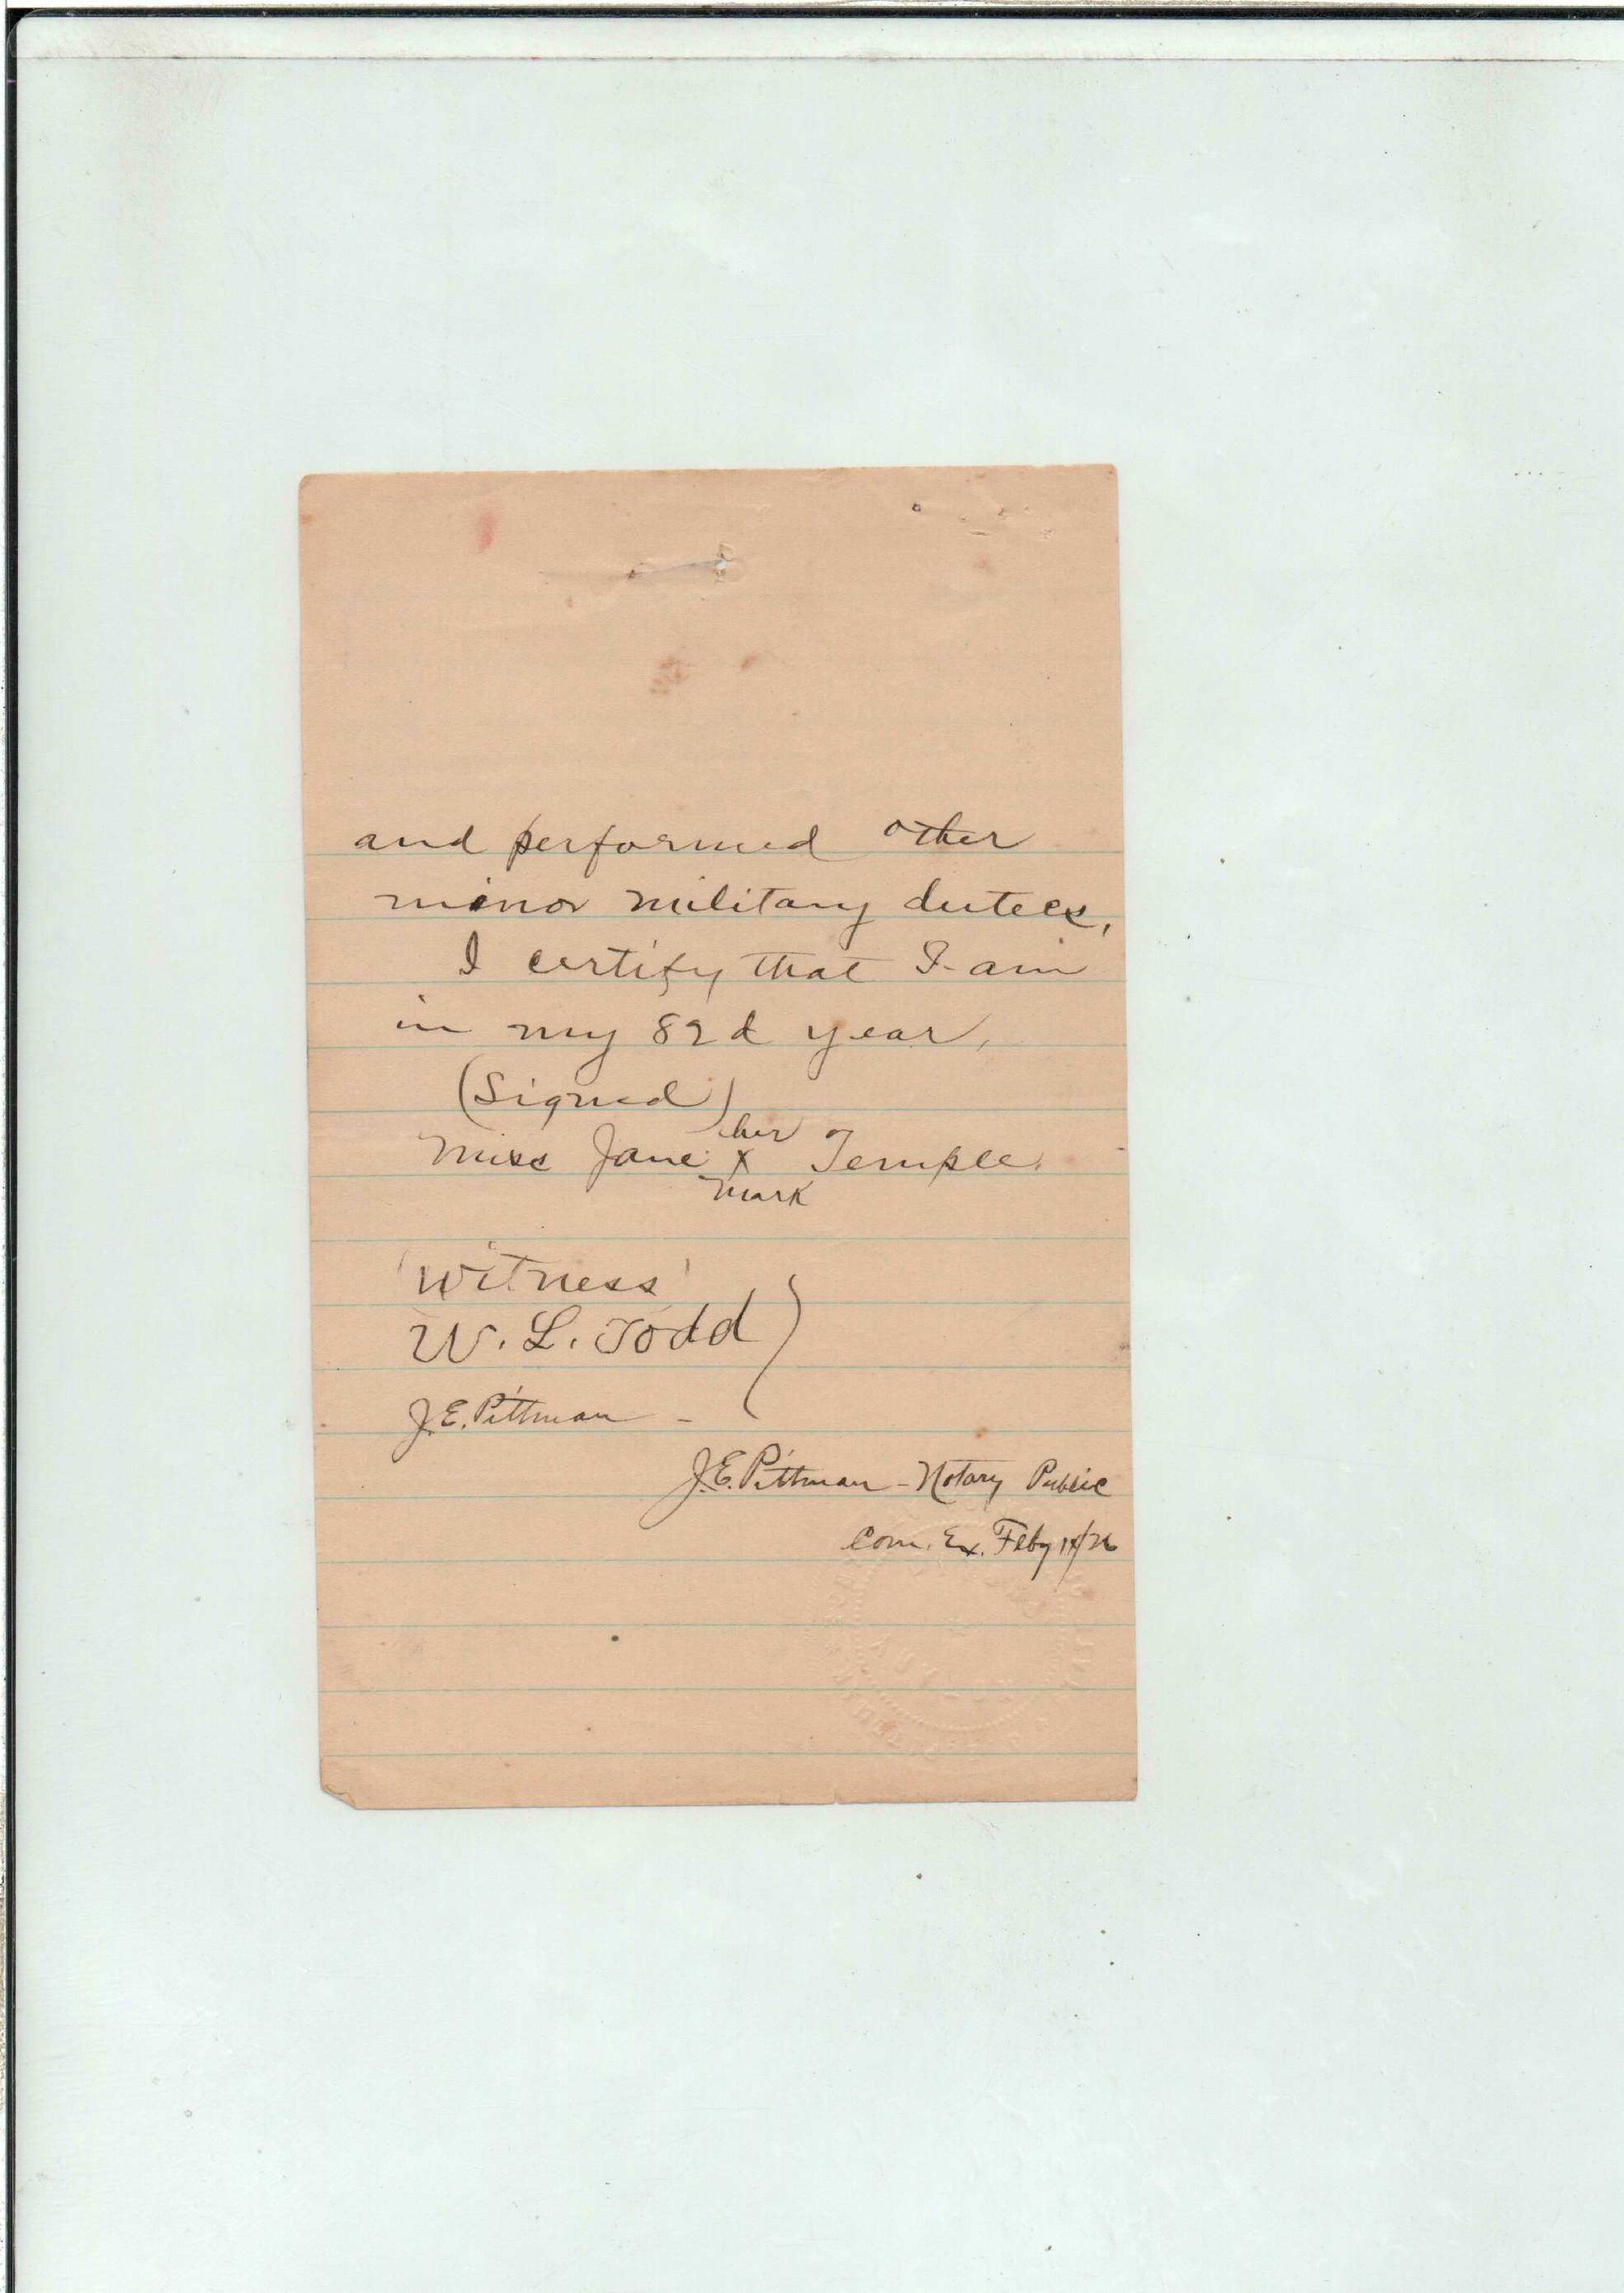 and performed other
minor military dutees,
I certify that I am
in my 82d year,
(Signed)
her
Miss Jane x Temple.
mark
'Witness'
W. L. Todd
J.E. Pittman -
J.E. Pittman - Notary Public
Com. Ex. Feby